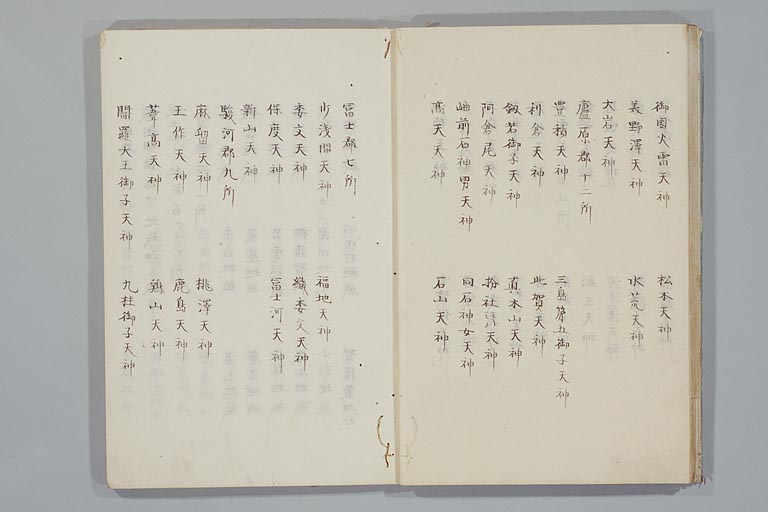 御国火雷天神　松本天神
美野澤天神　水荒天神
大岩天神
廬原郡十二所
豊積天神　三島第五御子天神
利倉天神　此賀天神
劔若御子天神　真本山天神
阿倉尾天神　扮社清天神
岫前石神男天神　同石神女天神
高天天神　石山天神
冨士郡七所
少浅間天神　福地天神
委文天神　織委文天神
保度天神　冨士河天神
新山天神
駿河郡九所
麻留天神　桃澤天神
玉作天神　鹿島天神
葦高天神　鶏山天神
閻羅大王御子天神　九柱御子天神